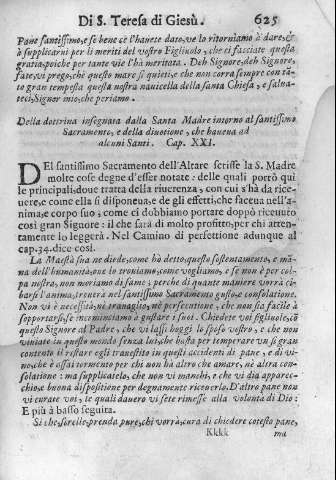 Di S. Teresa di Giesù. 625
Pane santissimo, e se bene ce l'hauete dato, ve lo ritorniamo à dare, &
à supplicarui per li meriti del vostro Figliuolo, che ci facciate questa
gratia, poiche per tante vie l'hà meritata. Deh Signore, deh Signore,
fate, vi prego, che questo mare si quieti, e che non corra sempre con tã-
to gran tempesta questa nostra nauicella della santa Chiesa, e salua-
teci, Signor mio, che periamo.
Della dottrina insegnata dalla Santa Madre intorno al santissimo
Sacramento, e della diuotione, che haueua ad
alcuni Santi. Cap. XXI.
DEl santissimo Sacramento dell'Altare scrisse la S. Madre
molte cose degne d'esser notate: delle quali porrò quì
le principali, doue tratta della riuerenza, con cui s'hà da rice-
uere, e come ella si disponeua, e de gli effetti, che faceua nell'a-
nima, e corpo suo; come ci dobbiamo portare doppò riceuuto
così gran Signore: il che sarà di molto profitto, per chi atten-
tamente lo leggerà. Nel Camino di perfettione adunque al
cap. 34. dice così.
La Maestà sua ne diede, come hò detto, questo sostentamento, e mã-
na dell'humanità, que lo trouiamo, come vogliamo, e se non è per col-
pa nostra, non moriamo di fame; perche di quante maniere vorrà ci-
barsi l'anima, trouerà nel santissimo Sacramento gusto, e consolatione.
Non vi è necessità, nè trauaglio, nè persecutione, che non sia facile à
sopportarsi, se incominciamo à gustare i suoi. Chiedete voi figliuole, cõ
questo Signore al Padre, che vi lassi hoggi lo sposo vostro, e che non
viuiate in questo mondo senza lui, che basta per temperare vn sì gran
contento il restare egli trauestito in questi accidenti di pane, e di vi-
no, che è assai tormento per chi non hà altro che amare, nè altra con-
solatione: ma supplicatelo, che non vi manchi, e che vi dia apparec-
chio, e buona dispositione per degnamente riceuerlo. D'altro pane non
vi curate voi, le quali dauero vi sete rimesse alla volontà di Dio:
E più à basso seguita.
Si che, sorelle, prenda pure, chi vorrà, cura di chiedere cotesto pane,
Kkkk ma